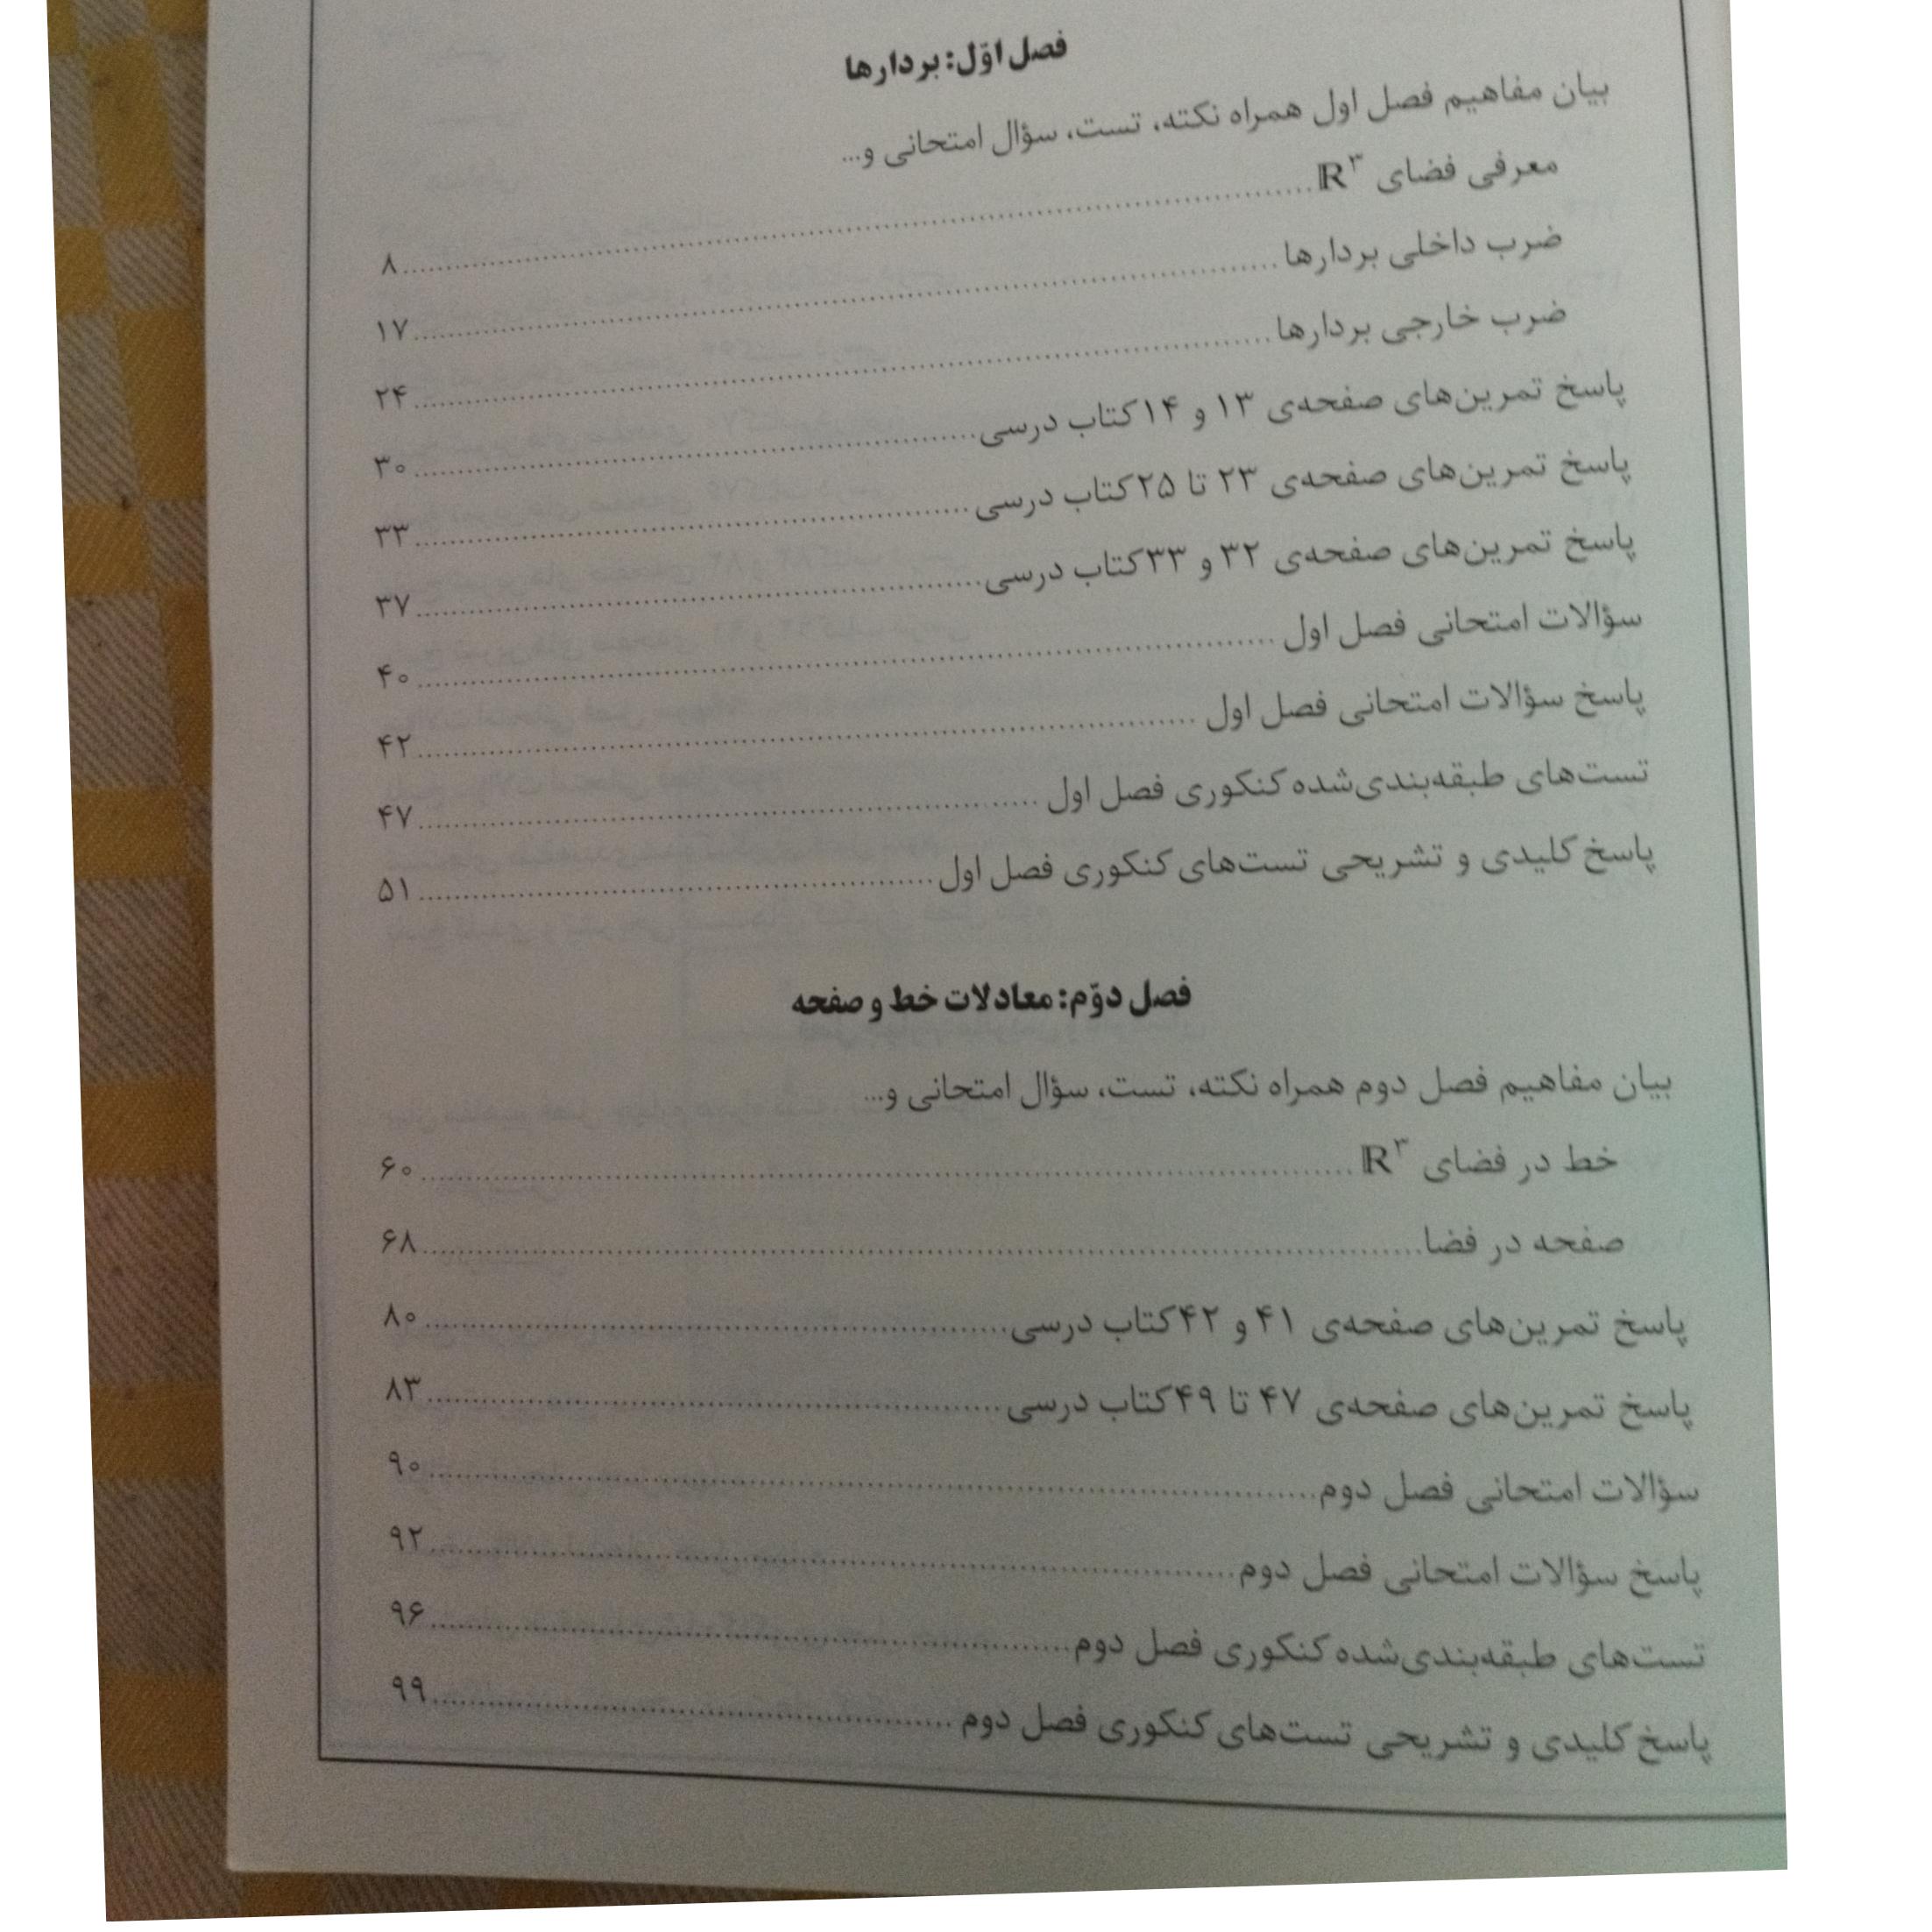 فصل اوّل: بردارها
بیان مفاهیم فصل اول همراه نکته، تست، سؤال امتحانی و...
معرفی فضای ℝ۳ ........ ۸
ضرب داخلی بردارها ........ ۱۷
ضرب خارجی بردارها ........ ۲۴
پاسخ تمرین‌های صفحه‌ی ۱۳ و ۱۴ کتاب درسی ........ ۳۰
پاسخ تمرین‌های صفحه‌ی ۲۳ تا ۲۵ کتاب درسی ........ ۳۳
پاسخ تمرین‌های صفحه‌ی ۳۲ و ۳۳ کتاب درسی ........ ۳۷
سؤالات امتحانی فصل اول ........ ۴۰
پاسخ سؤالات امتحانی فصل اول ........ ۴۲
تست‌های طبقه‌بندی‌شده کنکوری فصل اول ........ ۴۷
پاسخ کلیدی و تشریحی تست‌های کنکوری فصل اول ........ ۵۱
فصل دوّم: معادلات خط و صفحه
بیان مفاهیم فصل دوم همراه نکته، تست، سؤال امتحانی و...
خط در فضای ℝ۳ ........ ۶۰
صفحه در فضا ........ ۶۸
پاسخ تمرین‌های صفحه‌ی ۴۱ و ۴۲ کتاب درسی ........ ۸۰
پاسخ تمرین‌های صفحه‌ی ۴۷ تا ۴۹ کتاب درسی ........ ۸۳
سؤالات امتحانی فصل دوم ........ ۹۰
پاسخ سؤالات امتحانی فصل دوم ........ ۹۲
تست‌های طبقه‌بندی‌شده کنکوری فصل دوم ........ ۹۶
پاسخ کلیدی و تشریحی تست‌های کنکوری فصل دوم ........ ۹۹